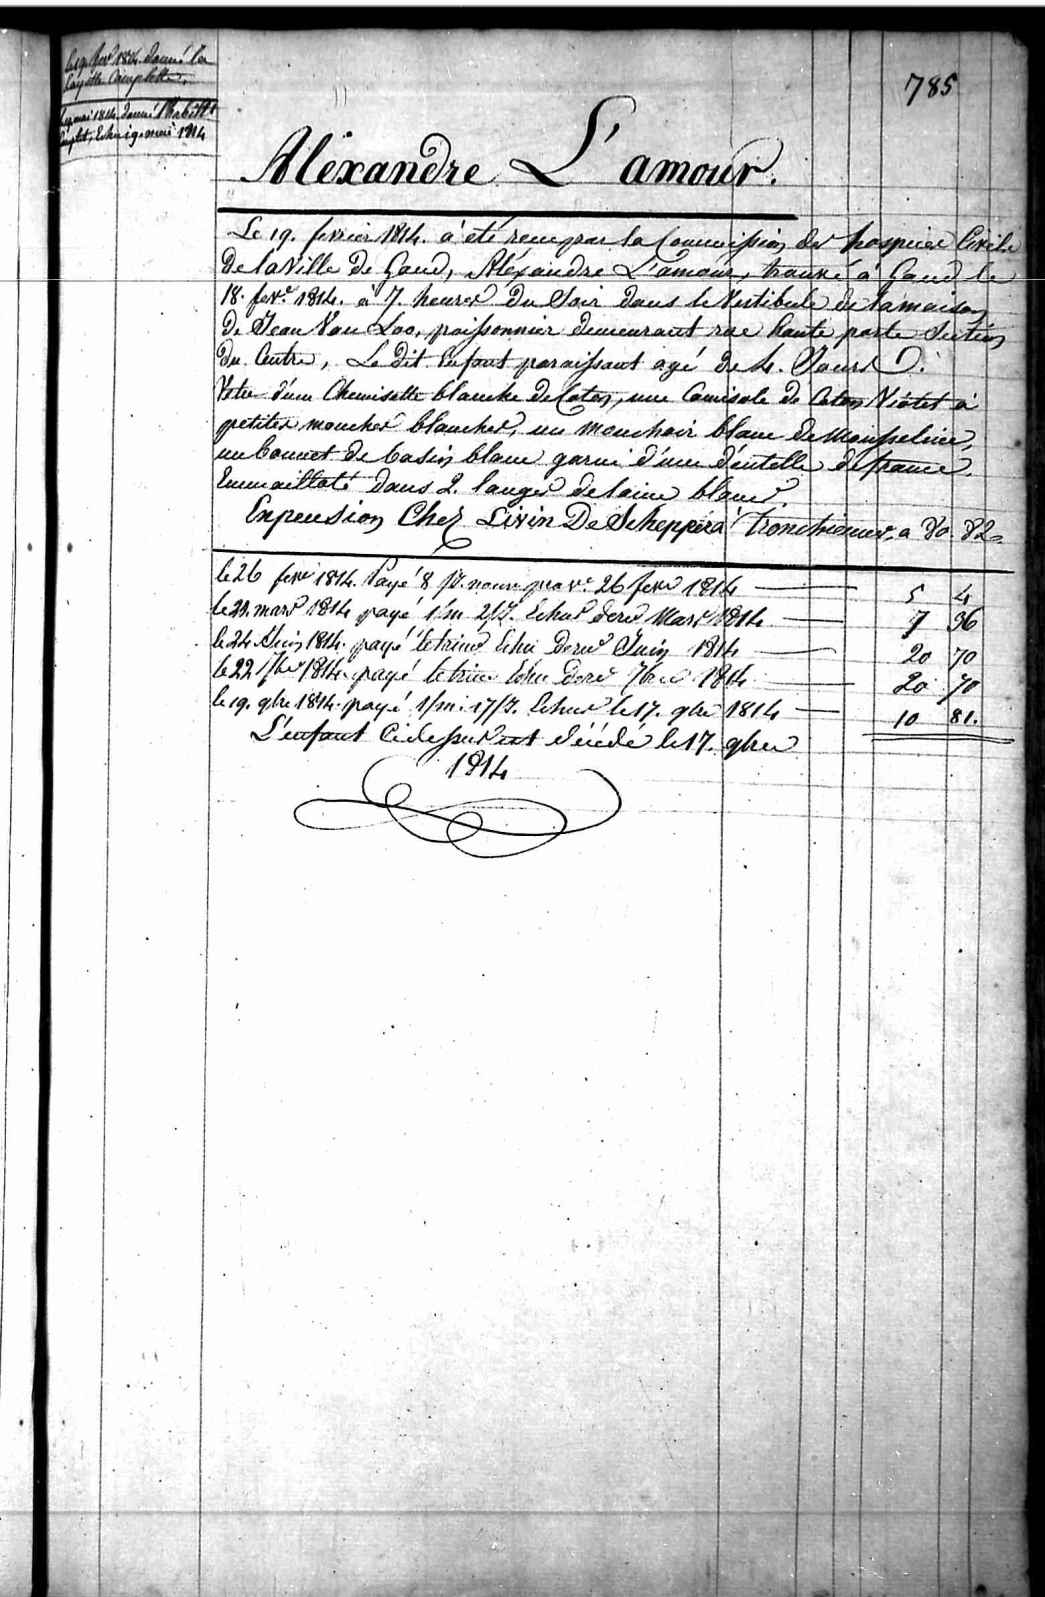 785
le 19 fevr 1814. donné la
layette Complette.
le 19 mai 1814. donné l'habillt
complet, Echu 19. mai 1814
Aléxandre L'amour.
Le 19. fevrier 1814. à été recu par la Commission des hospices Civils
de la Ville de Gand, Aléxandre L'amour, trouvé à Gand le
18. fevr. 1814. à 7. heures du Soir dans le Vestibule de la maison
de Jean Van Loo, poissonnier demeurant rue haute porte Section
du Centre, Le dit Enfant paraissant agé de 4. Jours.
Vetu d'une Chemisette blanche de Coton, une Camisole de Coton Violet à
petites mouches blanches, un mouchoir blanc de Mousseline,
un bonnet de basin blanc garni d'une d'entelle de france,
Emmailloté dans 2. langes de laine blancs.
En pension Chez Livin De Schepper à Tronchiennes, a
le 26 fevr 1814. Payé 8 26 fevr 1814 — 5 4
le 22. mars 1814 payé 1/m 2/J. Echus derr Mars 1814 — 7 36
le 24 Juin 1814. payé le trimr Echu derr Juin 1814 — 20 70
le 22 7bre 1814. payé le trimr Echu derr 7bre 1814 — 20 70
le 19. 9bre 1814. payé 1/m. 17/J. Echus le 17. 9bre 1814 — 10 81.
L'enfant Ci dessus est décédé le 17. 9bre
1814